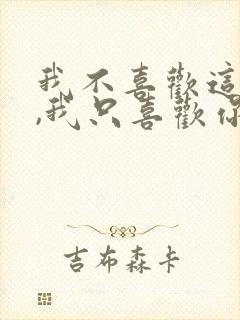 我不喜歡這
,我只喜歡你
吉布森卡